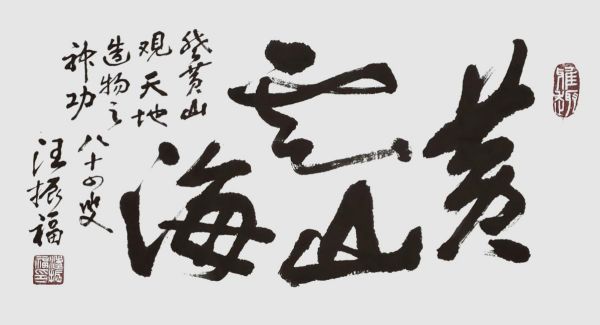 黄山云海
登黄山
观天地
造物之
神功
八十四叟
汪振福